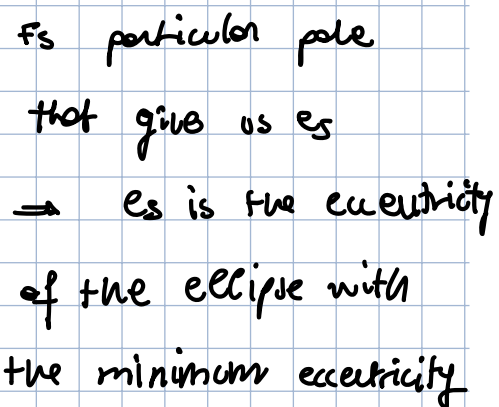 Fs particular pole
that gives us es
⇒ es is the eccentricity
of the ellipse with
the minimum eccentricity